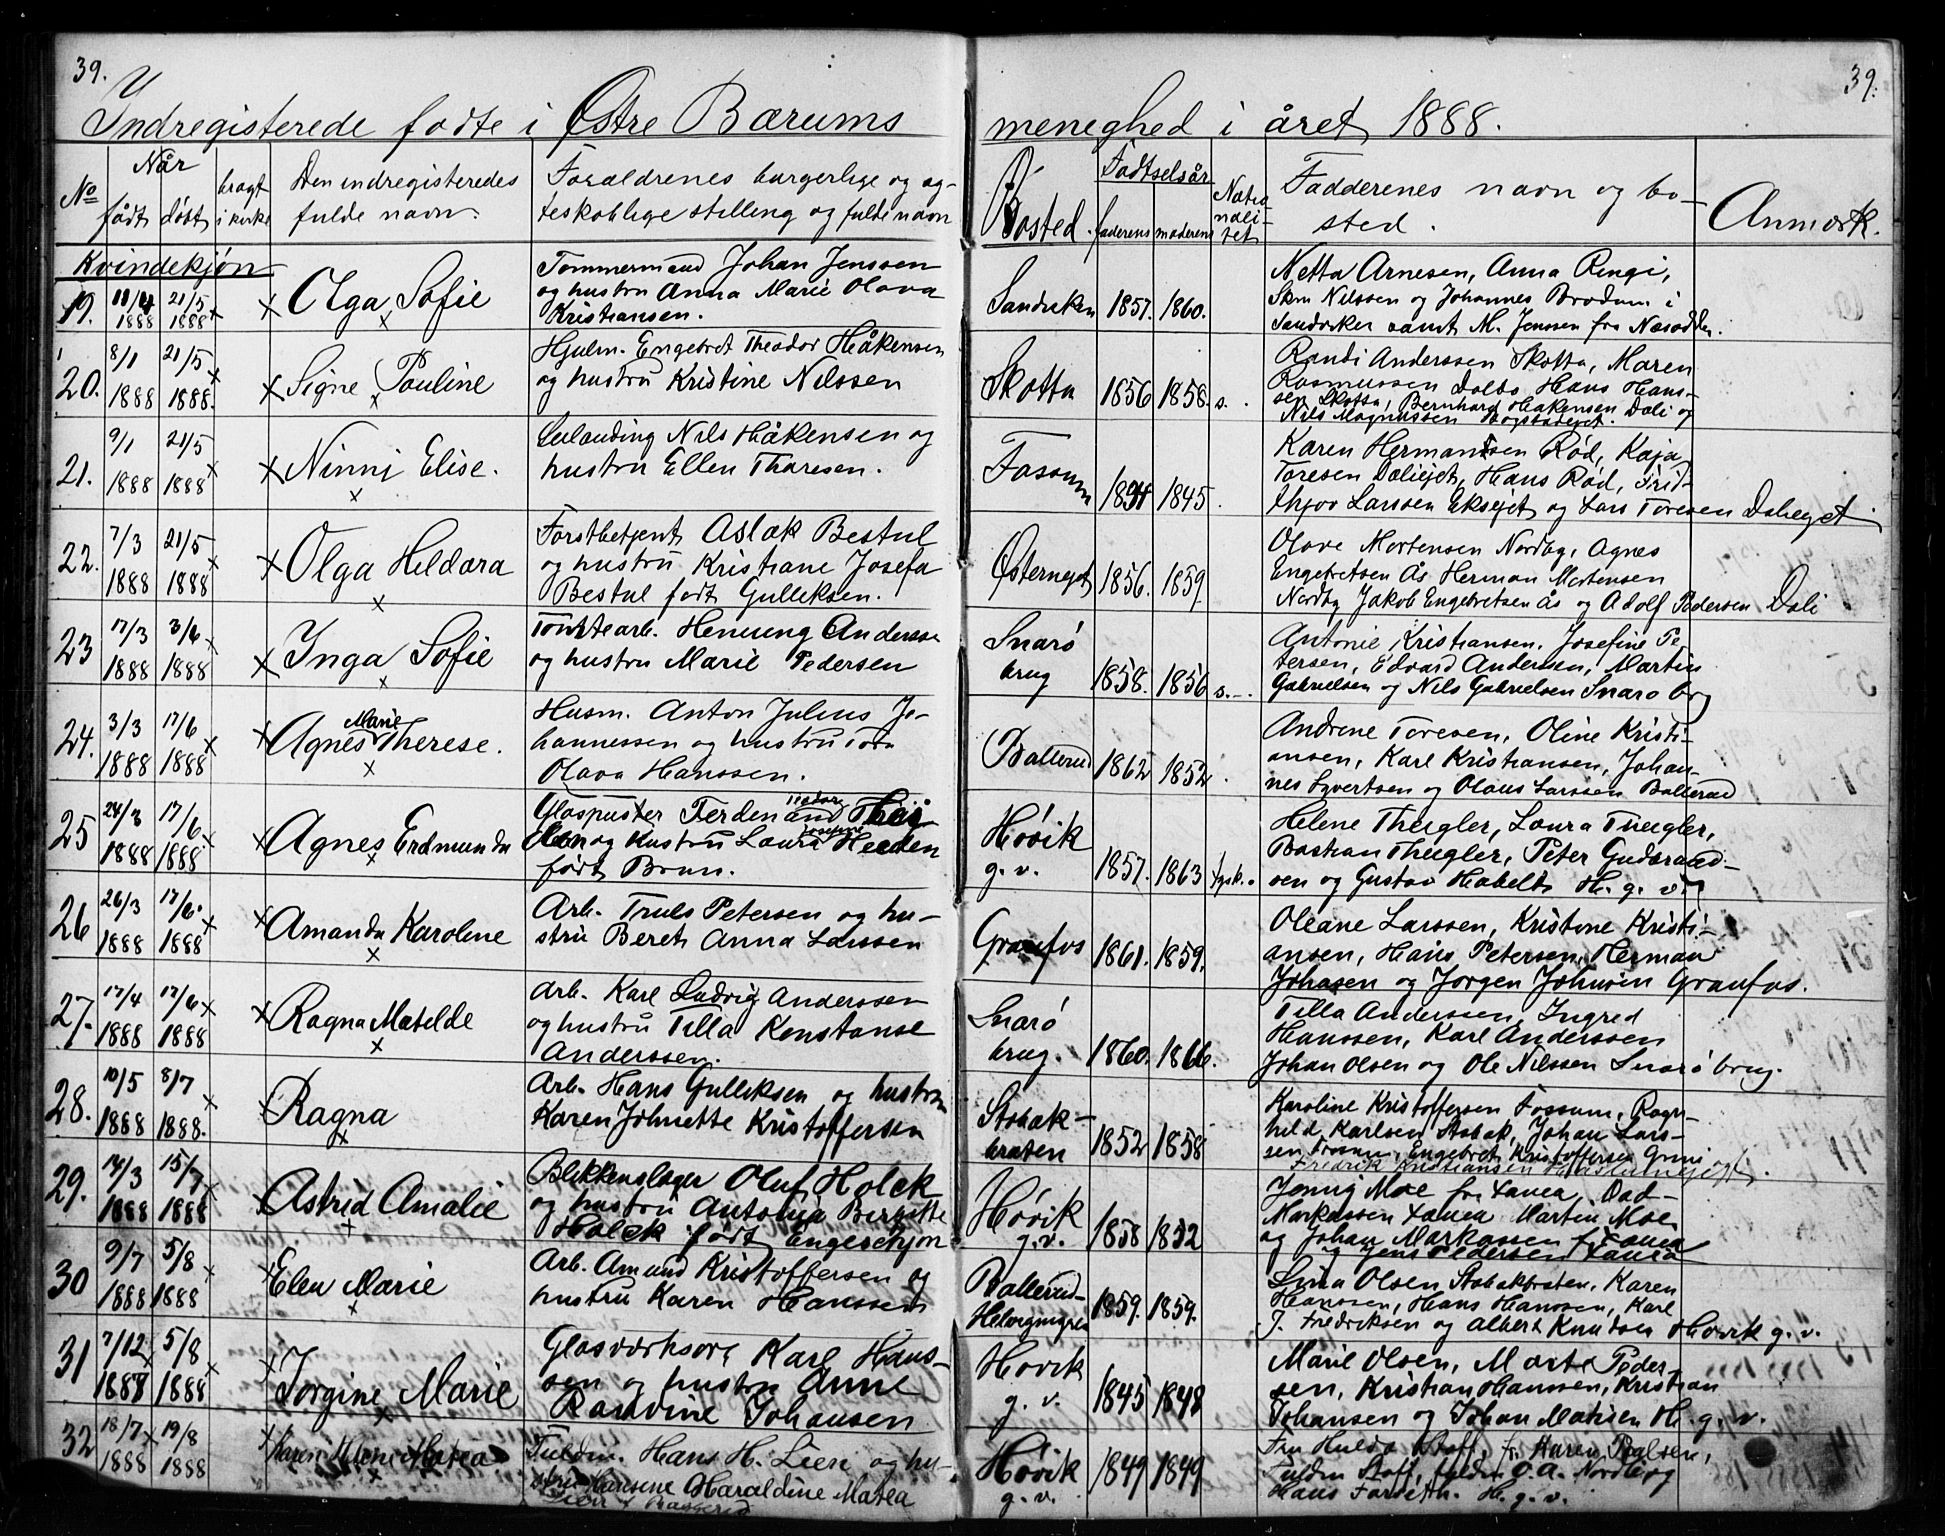 39.
39.
Indregisterede fødte i Østre Bærums
menighed i året 1888.
No
Når
født
døbt
bragt i kirke
Den indregisteredes fulde navn.
Forældrenes borgerlige og og-
teskablige stilling og fulde navn
Bosted.
Fødselsår
faderens
moderens
Natio
nali-
tet
Faddernes navn og bo-
sted.
Anmærk.
Kvindekjøn
19. 18/4 1888 21/5 1888 Olga Sofie
Tømmermand Johan Jenssen
og hustru Anna Marie Olava
Kristiansen.
Sandviken 1857. 1860.
Netta Arnesen, Anna Ringi,
Nilssen og Johannes Brodum i
Sandviken samt M. Jenssen fra Næsodden.
20. 8/1 1888 21/5 1888. Signe Pauline
Hjulm. Engebret Theodor Håkensen
og hustru Kristine Nilssen
Skotta 1856 1858. s.
Randi Anderssen Skotta, Maren
Rasmussen Dalbo, Hans Hans-
sen Skotta, Bernhard Håkensen Dæli og
Nils Magnussen
21. 9/1 1888 21/5 1888 Ninni Elise.
Nils Håkensen og
hustru Ellen Thoresen.
Fossum 1845
Karen Hermansen Rød, Kaja
Toresen Dæliejet, Hans Rød, Frid-
thjov Larssen Eksejet og Lars Toresen Daliejet
22. 7/3 1888 21/5 1888 Olga Heldora
Forstbetjent Aslak Bestul
og hustru Kristiane Josefa
Bestul født Gulliksen.
Østernejet 1856. 1859
Olave Mortensen Nordby, Agnes
Engebretsen Ås Herman Mortensen
Nordby Jakob Engebretsen Ås og Adolf Pedersen Dæli
23 17/3 1888 3/6 1888 Inga Sofie
Tomtearb. Henning Anderssen
og hustru Marie Pedersen
Snarø
brug 1858. 1856 s.
Antonie Kristiansen, Josefine Pe-
tersen, Edvard Andersen, Martin
Gabrielsen og Nils Gabrielsen Snarø brug
24. 3/3 1888 17/6 1888 Agnes Marie Therese.
Husm. Anton Julius Jo-
hannessen og hustru Tora
Olava Hanssen.
Ballerud 1862 1852
Andrine Toresen, Oline Kristi-
ansen, Karl Kristiansen, Johan-
nes Syvertsen og Olaus Larssen Ballerud
25 24/3 1888 17/6 1888 Agnes Erdmunda
Glaspuster Ferdenand
og hustru Laura Josefine
født Brun.
Høvik
g. v. 1857. 1863 tysk.
Helene Theigler, Laura Theigler,
Bastian Theigler, Peter Gudbrand-
sen og Gustav Habelt H. g. v.
26 26/3 1888 17/6 1888 Amanda Karoline
Arb. Truls Petersen og hu-
stru Beret Anna Larssen
Granfos 1861. 1859.
Oleane Larssen, Kristine Kristi-
ansen, Hans Petersen, Herman
Johnsen og Jørgen Johnsen Granfos.
27. 17/4 1888 17/6 1888 Ragna Matelde
Arb. Karl Ludvig Anderssen
og hustru Tilla Konstanse
Anderssen.
Snarø
brug. 1860. 1866.
Tilla Anderssen, Ingred
Hanssen, Karl Anderssen
Johan Olsen og Ole Nilssen Snarø brug.
28. 10/5 1888 8/7 1888. Ragna
Arb. Hans Gulliksen og hustru
Karen Johnette Kristoffersen
Stabæk-
braten 1852 1858
Karoline Kristoffersen Fossum, Ragn-
hild Karlsen Stabæk, Johan Lars-
sen Fossum, Engebret Kristoffersen Grini og
Fredrik Kristiansen
29. 14/3 1888 15/7 1888 Astrid Amalie
Blikkenslager Oluf Holck
og hustru Antonia Birgitte
Holck født Engeschjøn
Høvik
g. v. 1858 1852
Jenny Moe
Markussen Martin Moe
og Johan Markussen
og Jens Pedersen
30 9/7 1888 5/8 1888 Elen Marie
Arb. Amund Kristoffersen og
hustru Karen Hanssen
Ballerud-
1859. 1859.
Lina Olsen Stabækbråten, Karen
Hanssen, Hans Hanssen, Karl
J. Fredriksen og Albert Knudsen Høvik g. v.
31 7/12 1887 5/8 1888 Jørgine Marie
Glasværksarb. Karl Hans-
sen og hustru Anne
Randine Johansen
Høvik
g. v. 1845 1848
Marie Olsen, Marte Peder-
sen, Kristian Hanssen, Kristian
Johansen og Johan Madsen H. g. v.
32 18/7 1888 19/8 1888 Karen Milene Matea
Fuldm. Hans H. Lien og hu-
stru Hansine Haraldine Matea
Høvik
g. v. 1849 1849
Fru Hulda Stoff, fr. Karen Paalsen,
Fuldm Stoff, fuldm O. A. Nordby og
Hans Forseth. H. g. v.